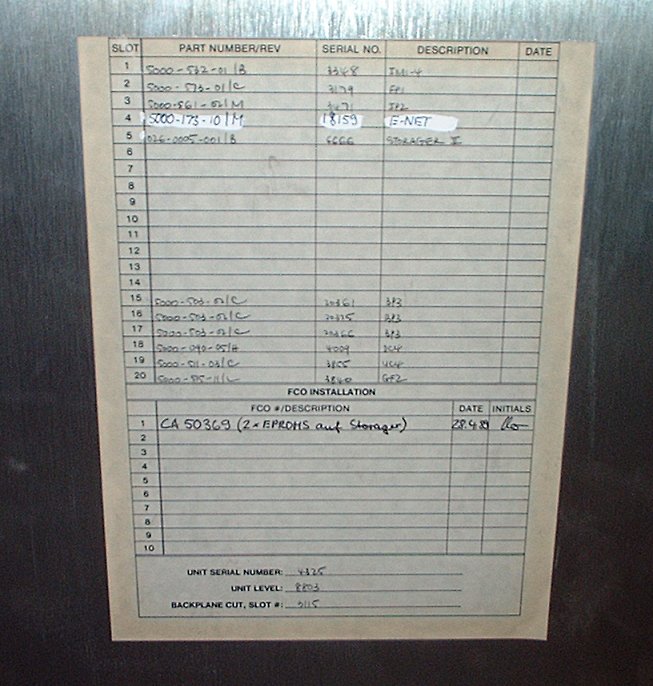 SLOT PART NUMBER/REV SERIAL NO. DESCRIPTION DATE
1 5000-532-01/B 3348 IM1-4
2 5000-573-01/C 3179 FP1
3 5000-561-02/M 3471 IP2
4 5000-173-10/M 18159 E-NET
5 026-0005-001/B 6666 STORAGER II
6
7
8
9
10
11
12
13
14
15 5000-503-02/C 20361 BP3
16 5000-503-02/C 20325 BP3
17 5000-503-02/C 20366 BP3
18 5000-090-05/H 4009 DC4
19 5000-511-03/C 3855 UC4
20 3840 GF2
FCO INSTALLATION
FCO #/DESCRIPTION DATE INITIALS
1 CA 50369 (2x EPROMS auf Storager) 28.4.89
2
3
4
5
6
7
8
9
10
UNIT SERIAL NUMBER: 4325
UNIT LEVEL: 8803
BACKPLANE CUT, SLOT #: